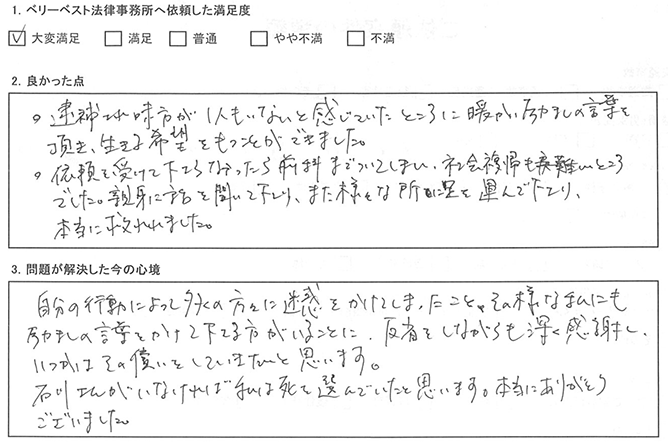 1. ベリーベスト法律事務所へ依頼した満足度
☑ 大変満足 □ 満足 □ 普通 □ やや不満 □ 不満
2. 良かった点
・逮捕され味方が1人もいないと感じていたところに暖かい励ましの言葉を
頂き、生きる希望をもつことができました。
・依頼を受けて下さらなかったら前科までついてしまい、社会復帰も困難いところ
でした。親身に話を聞いて下さり、また様々な所に足を運んで下さり、
本当に救われました。
3. 問題が解決した今の心境
自分の行動によって多くの方々に迷惑をかけてしまったこと、その様な私にも
励ましの言葉をかけて下さる方がいることに、反省をしながらも深く感謝し、
いつかはその償いをしていきたいと思います。
石川さんがいなければ私は死を選んでいたと思います。本当にありがとう
ございました。